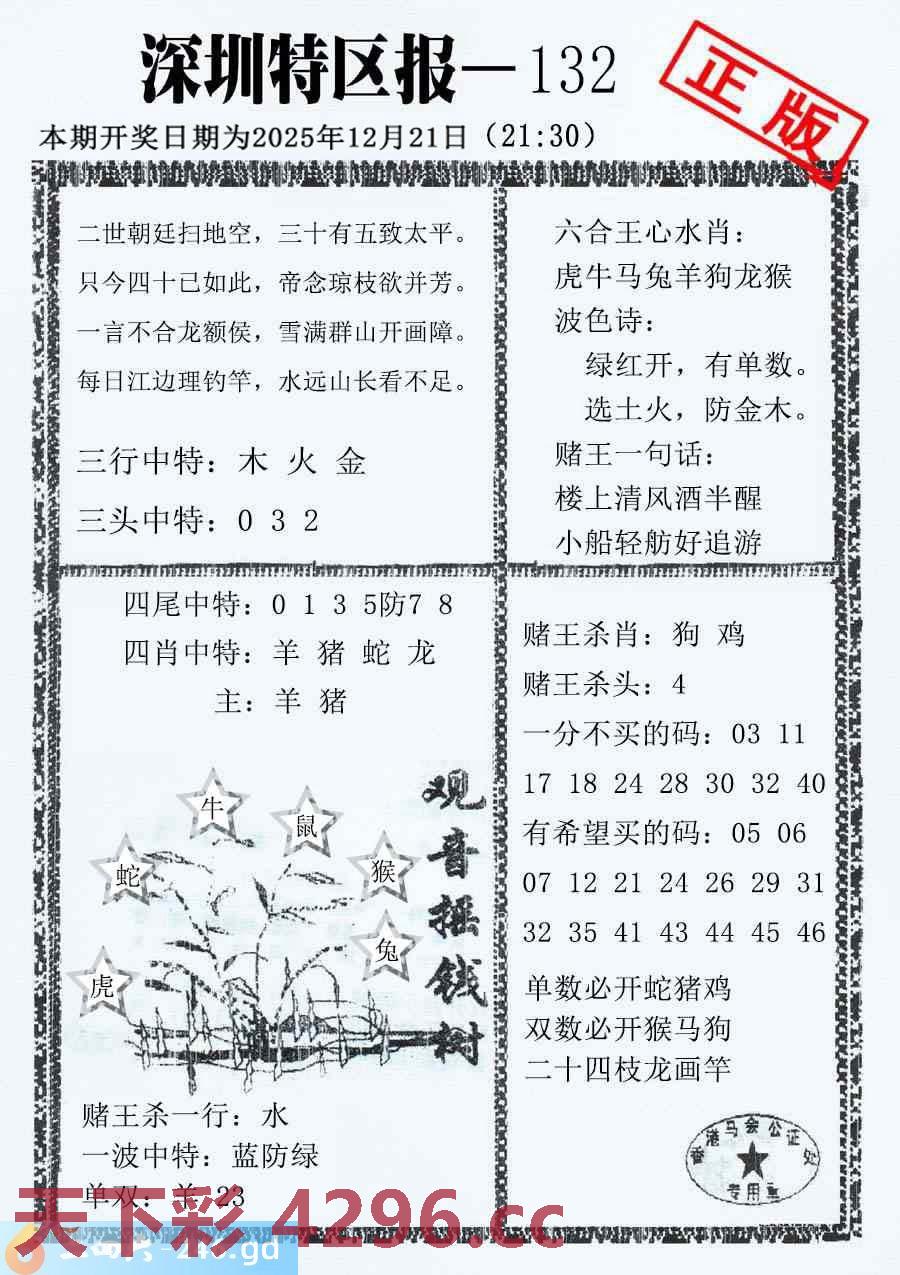 深圳特区报—132
正版
本期开奖日期为2025年12月21日（21:30）
二世朝廷扫地空，三十有五致太平。
只今四十已如此，帝念琼枝欲并芳。
一言不合龙额侯，雪满群山开画障。
每日江边理钓竿，水远山长看不足。
三行中特：木 火 金
三头中特：0 3 2
六合王心水肖：
虎牛马兔羊狗龙猴
波色诗：
绿红开，有单数。
选土火，防金木。
赌王一句话：
楼上清风酒半醒
小船轻舫好追游
四尾中特：0 1 3 5防7 8
四肖中特：羊 猪 蛇 龙
主：羊 猪
牛
鼠
蛇
猴
兔
虎
观音摇钱树
赌王杀一行：水
一波中特：蓝防绿
单双：羊 23
赌王杀肖：狗 鸡
赌王杀头：4
一分不买的码：03 11
17 18 24 28 30 32 40
有希望买的码：05 06
07 12 21 24 26 29 31
32 35 41 43 44 45 46
单数必开蛇猪鸡
双数必开猴马狗
二十四枝龙画竿
香港马会公证处
专用章
天下彩 4296.cc
246.gd